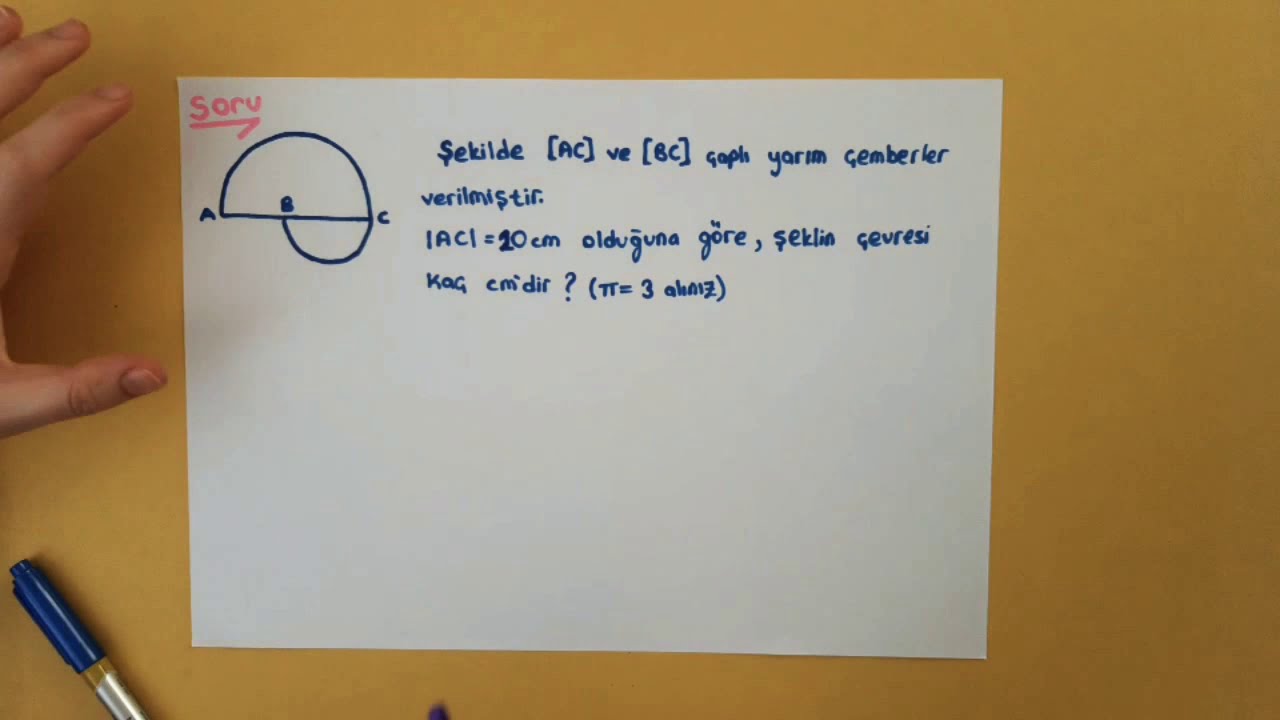 Soru
A
B
C
Şekilde [AC] ve [BC] çaplı yarım çemberler
verilmiştir.
|AC| = 20cm olduğuna göre, şeklin çevresi
kaç cm'dir ? (π= 3 alınız)